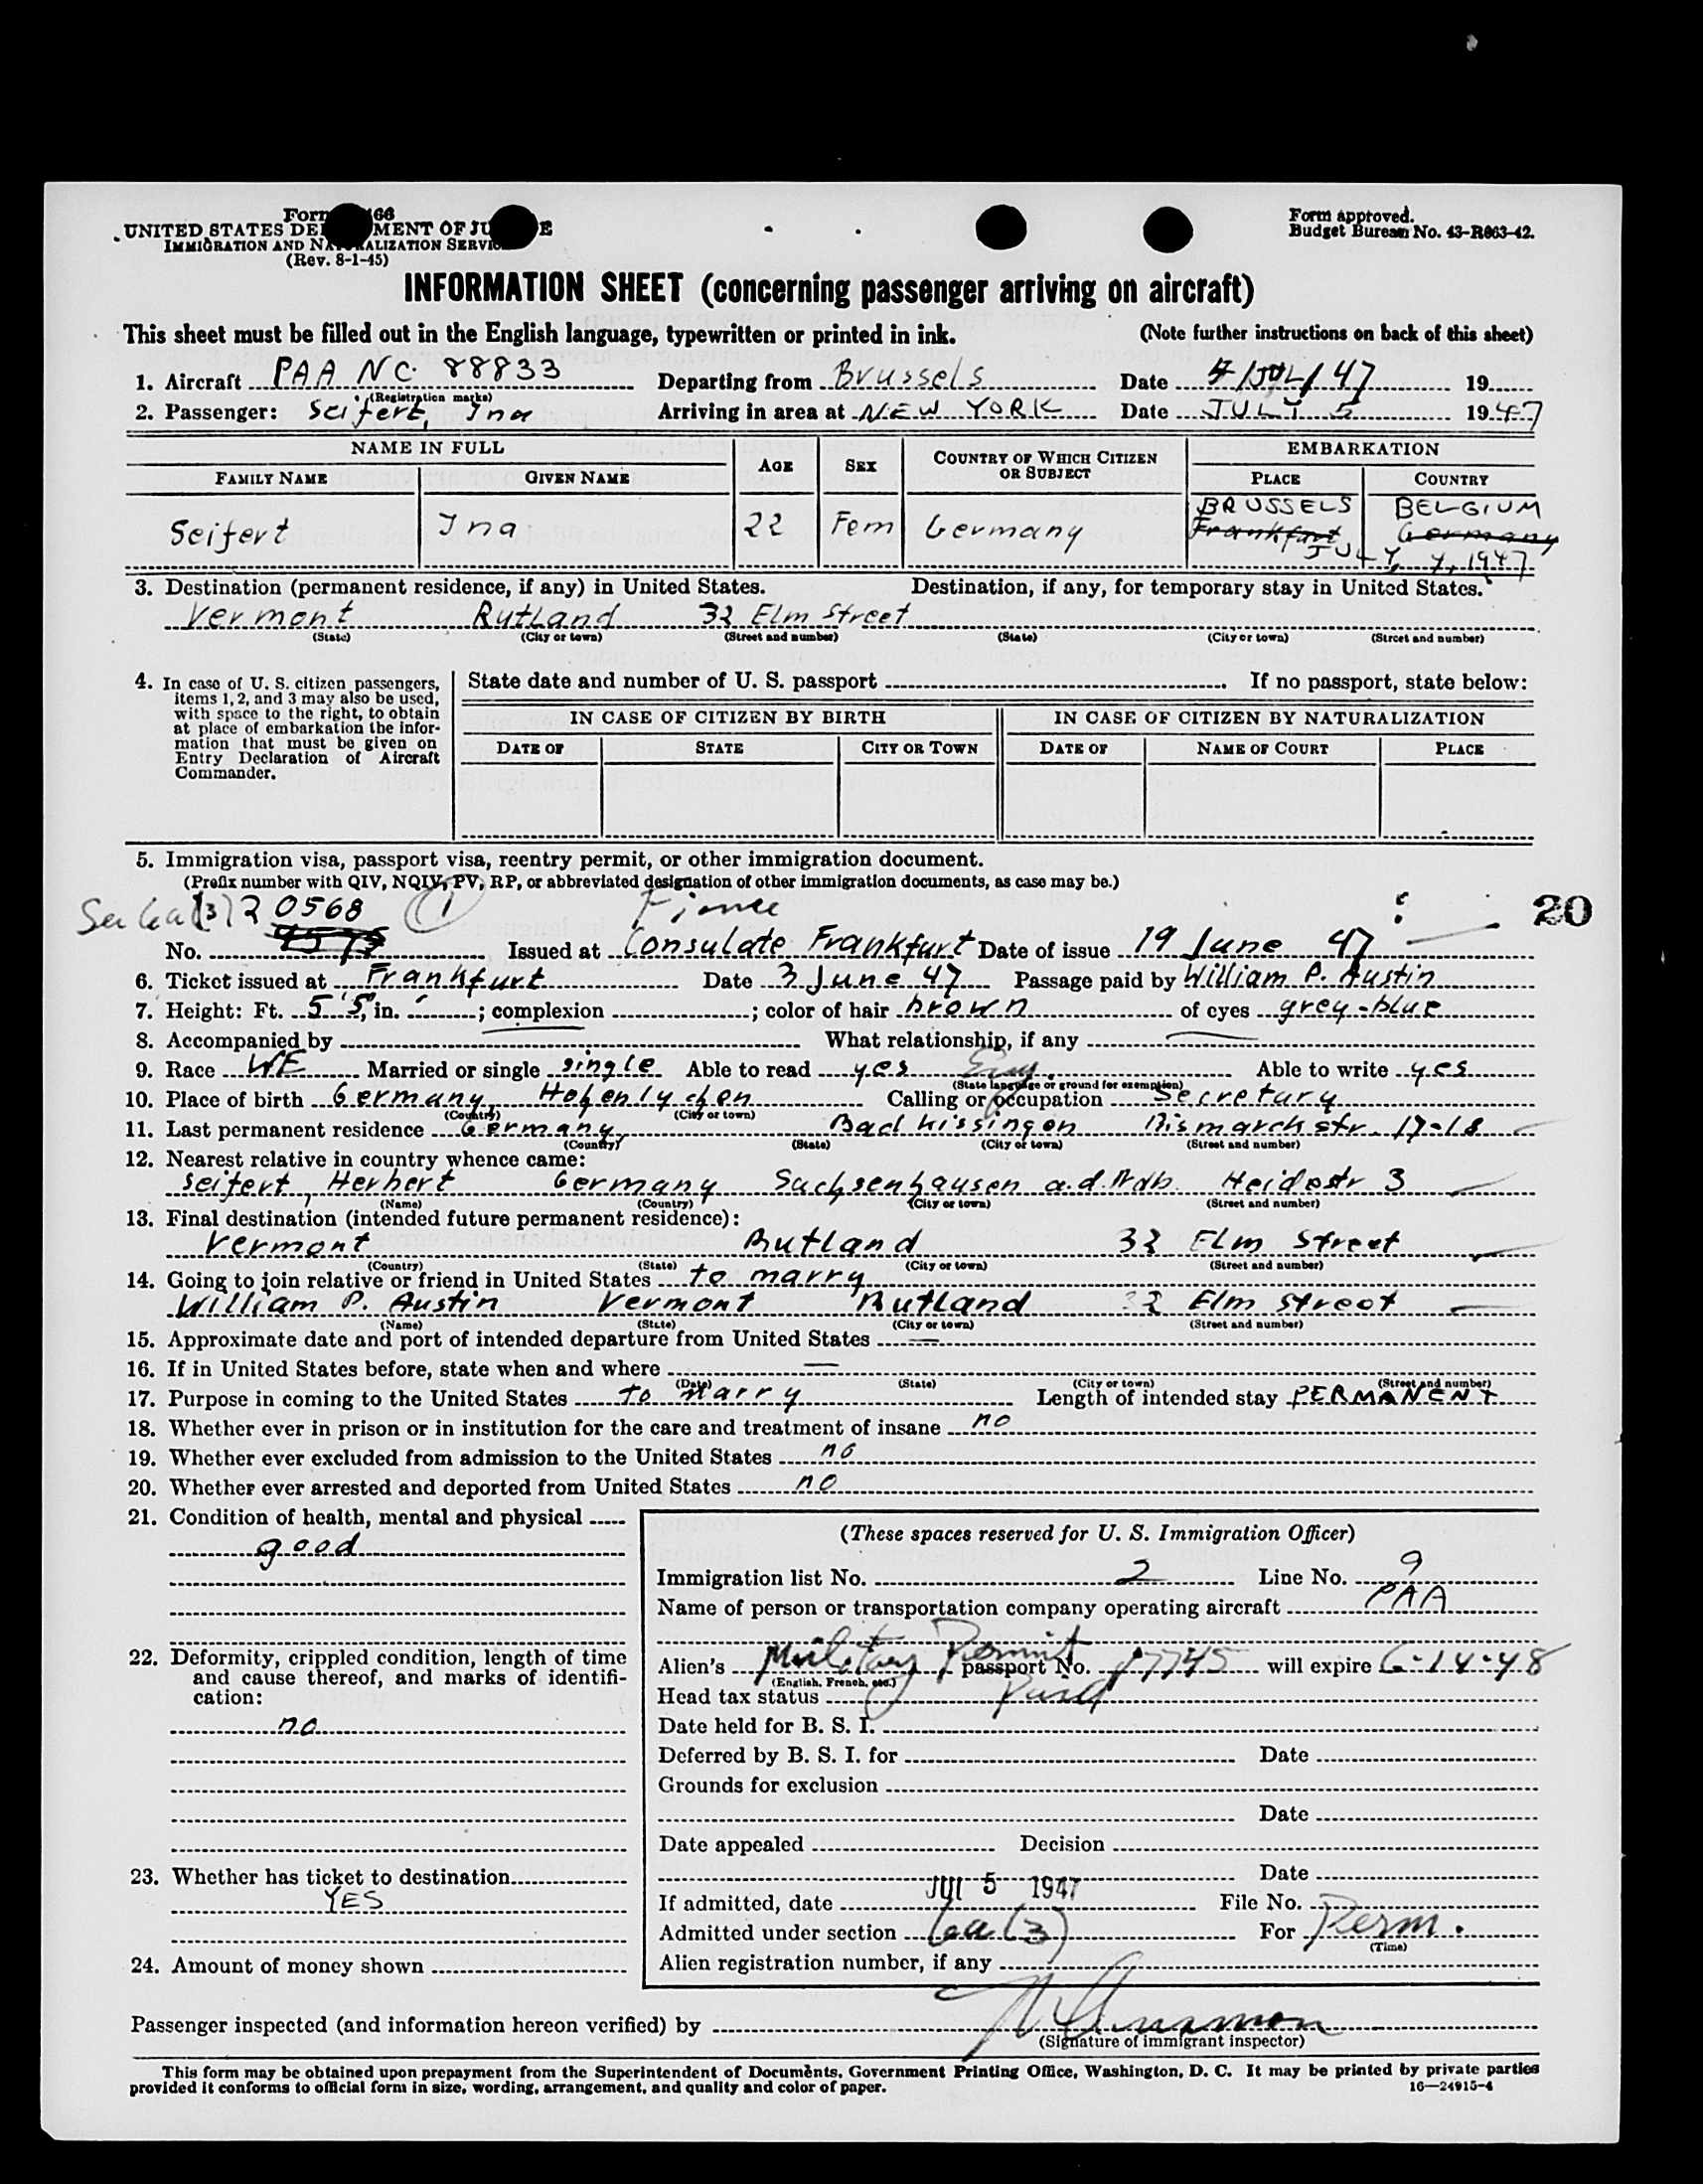 Form 66
UNITED STATES DE MENT OF JU E
IMMIGRATION AND NATURALIZATION SERVIC
(Rev. 8-1-45)
Form approved.
Budget Bureau No. 43-R063-42.
INFORMATION SHEET (concerning passenger arriving on aircraft)
This sheet must be filled out in the English language, typewritten or printed in ink. (Note further instructions on back of this sheet)
1. Aircraft PAA NC 88833 Departing from Brussels Date 4/JUL/47 19
(Registration marks)
2. Passenger: Seifert, Ina Arriving in area at NEW YORK Date JULY 5 1947
NAME IN FULL AGE SEX COUNTRY OF WHICH CITIZEN OR SUBJECT EMBARKATION
FAMILY NAME GIVEN NAME PLACE COUNTRY
BRUSSELS BELGIUM
Seifert Ina 22 Fem Germany Frankfurt Germany
JULY 4, 1947
3. Destination (permanent residence, if any) in United States. Destination, if any, for temporary stay in United States.
Vermont Rutland 32 Elm Street
(State) (City or town) (Street and number) (State) (City or town) (Street and number)
4. In case of U. S. citizen passengers,
items 1, 2, and 3 may also be used,
with space to the right, to obtain
at place of embarkation the infor-
mation that must be given on
Entry Declaration of Aircraft
Commander.
State date and number of U. S. passport If no passport, state below:
IN CASE OF CITIZEN BY BIRTH IN CASE OF CITIZEN BY NATURALIZATION
DATE OF STATE CITY OR TOWN DATE OF NAME OF COURT PLACE
5. Immigration visa, passport visa, reentry permit, or other immigration document.
(Prefix number with QIV, NQIV, PV, RP, or abbreviated designation of other immigration documents, as case may be.)
6a(3) 20568 1 20
No. Issued at Consulate Frankfurt Date of issue 19 June 47
6. Ticket issued at Frankfurt Date 3 June 47 Passage paid by William P. Austin
7. Height: Ft. 5'5", in. ; complexion ; color of hair brown of eyes grey-blue
8. Accompanied by What relationship, if any
9. Race WE Married or single single Able to read yes Eng. Able to write yes
(State language or ground for exemption)
10. Place of birth Germany, Hohenlychen Calling or occupation Secretary
(Country) (City or town)
11. Last permanent residence Germany, Bad Kissingen Bismarckstr. 17-18
(Country) (State) (City or town) (Street and number)
12. Nearest relative in country whence came:
Seifert, Herbert Germany Sachsenhausen a.d. Ndb. Heidestr 3
(Name) (Country) (City or town) (Street and number)
13. Final destination (intended future permanent residence):
Vermont Rutland 32 Elm Street
(Country) (State) (City or town) (Street and number)
14. Going to join relative or friend in United States to marry
William P. Austin Vermont Rutland 32 Elm Street
(Name) (State) (City or town) (Street and number)
15. Approximate date and port of intended departure from United States —
16. If in United States before, state when and where —
(Date) (State) (City or town) (Street and number)
17. Purpose in coming to the United States to marry Length of intended stay PERMANENT
18. Whether ever in prison or in institution for the care and treatment of insane no
19. Whether ever excluded from admission to the United States no
20. Whether ever arrested and deported from United States no
21. Condition of health, mental and physical
good
22. Deformity, crippled condition, length of time
and cause thereof, and marks of identifi-
cation:
no
23. Whether has ticket to destination
YES
24. Amount of money shown
(These spaces reserved for U. S. Immigration Officer)
Immigration list No. 2 Line No. 9
Name of person or transportation company operating aircraft PAA
Alien's Military Permit passport No. 17745 will expire 6-14-48
(English, French, etc.)
Head tax status Paid
Date held for B. S. I.
Deferred by B. S. I. for Date
Grounds for exclusion
Date
Date appealed Decision
Date
If admitted, date JUL 5 1947 File No.
Admitted under section 6a(3) For Perm.
(Time)
Alien registration number, if any
Passenger inspected (and information hereon verified) by
(Signature of immigrant inspector)
This form may be obtained upon prepayment from the Superintendent of Documents, Government Printing Office, Washington, D. C. It may be printed by private parties
provided it conforms to official form in size, wording, arrangement, and quality and color of paper. 16—24915-4